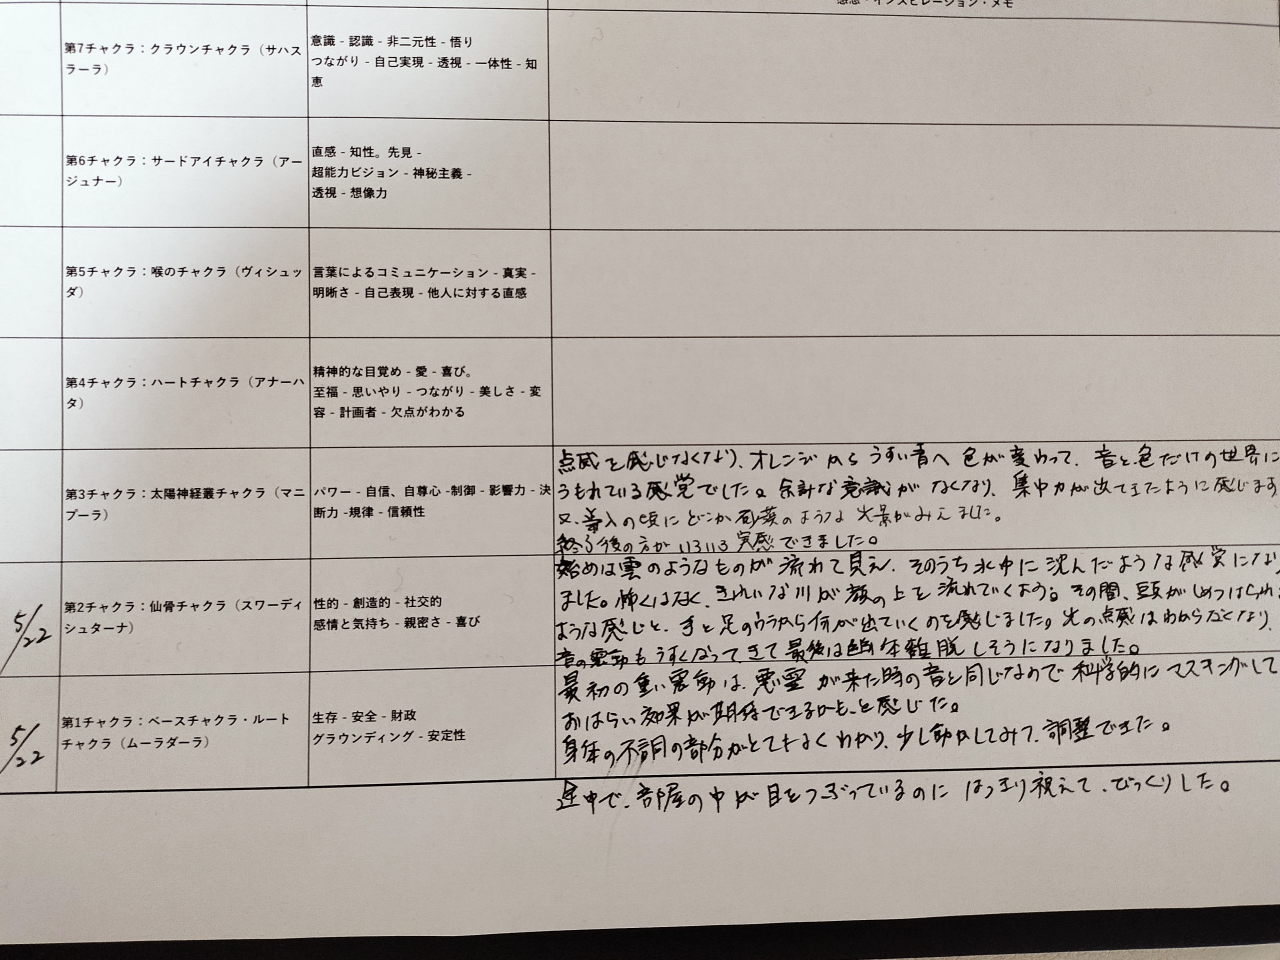 感想・インスピレーション・メモ
第7チャクラ：クラウンチャクラ（サハス
ラーラ）
意識 - 認識 - 非二元性 - 悟り
つながり - 自己実現 - 透視 - 一体性 - 知
恵
第6チャクラ：サードアイチャクラ（アー
ジュナー）
直感 - 知性。先見 -
超能力ビジョン - 神秘主義 -
透視 - 想像力
第5チャクラ：喉のチャクラ（ヴィシュッ
ダ）
言葉によるコミュニケーション - 真実 -
明晰さ - 自己表現 - 他人に対する直感
第4チャクラ：ハートチャクラ（アナーハ
タ）
精神的な目覚め - 愛 - 喜び。
至福 - 思いやり - つながり - 美しさ - 変
容 - 計画者 - 欠点がわかる
第3チャクラ：太陽神経叢チャクラ（マニ
プーラ）
パワー - 自信、自尊心 -制御 - 影響力 - 決
断力 -規律 - 信頼性
点滅を感じなくなり、オレンジからうすい青へ色が変わって、音と色だけの世界に
うもれている感覚でした。余計な意識がなくなり、集中力が出てきたように感じます
又、導入の頃にどこか砂漠のような光景がみえました。
終った後の方がいろいろ実感できました。
5/22
第2チャクラ：仙骨チャクラ（スワーディ
シュターナ）
性的 - 創造的 - 社交的
感情と気持ち - 親密さ - 喜び
始めは雲のようなものが流れて見え、そのうち水中に沈んだような感覚になり
ました。怖くはなく、きれいな川が顔の上を流れていくよう。その間、頭がしめつけられる
ような感じと、手と足のウラから何が出ていくのを感じました。光の点滅はわからなくなり、
音の震動もうすくなってきて最後は幽体離脱しそうになりました。
5/22
第1チャクラ：ベースチャクラ・ルート
チャクラ（ムーラダーラ）
生存 - 安全 - 財政
グラウンディング - 安定性
最初の重い震動は、悪霊が来た時の音と同じなので科学的にマスキングして
おはらい効果が期待できるかも、と感じた。
身体の不調の部分がとてもよくわかり、少し動かしてみて、調整できた。
途中で、部屋の中が目をつぶっているのにはっきり視えて、びっくりした。